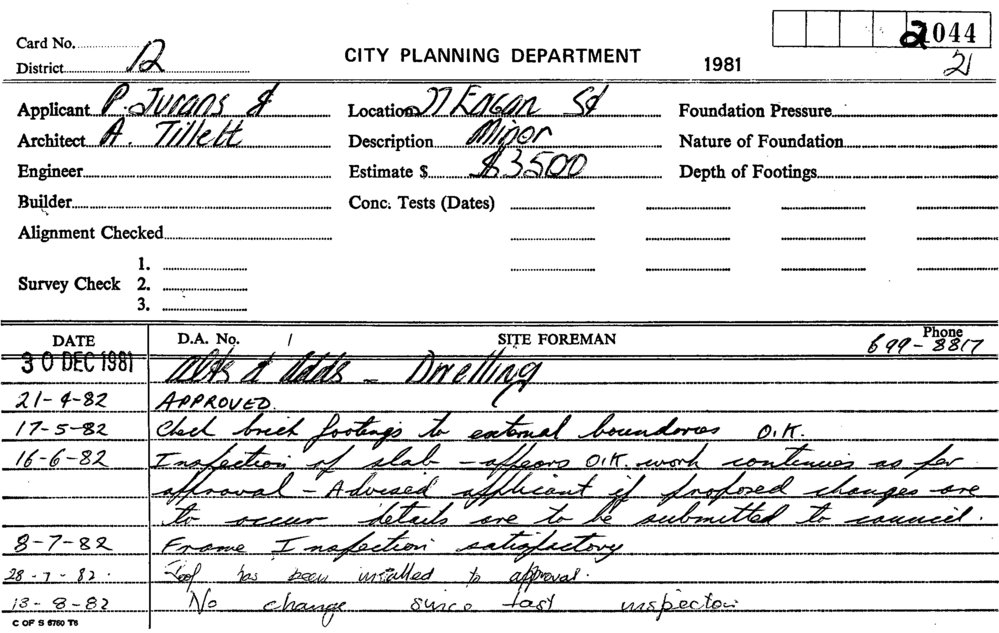 21044
Card No.
District 12
CITY PLANNING DEPARTMENT
1981
21
Applicant P. Jurans &
Location 27 Eagan St
Foundation Pressure
Architect A. Tillett
Description Minor
Nature of Foundation
Engineer
Estimate $ $3500
Depth of Footings
Builder
Conc. Tests (Dates)
Alignment Checked
Survey Check
1.
2.
3.
DATE
D.A. No. /
SITE FOREMAN
Phone
699-8817
30 DEC 1981 Alts & Adds - Dwelling
21-4-82 APPROVED.
17-5-82 Check brick footings to external boundaries O.K.
16-6-82 Inspection of slab - appears O.K. work continues as per
approval - Advised applicant if proposed changes are
to occur details are to be submitted to council.
8-7-82 Frame Inspection satisfactory
28-7-82. Roof has been installed to approval.
13-8-82 No change since last inspection
C OF S 6760 T6